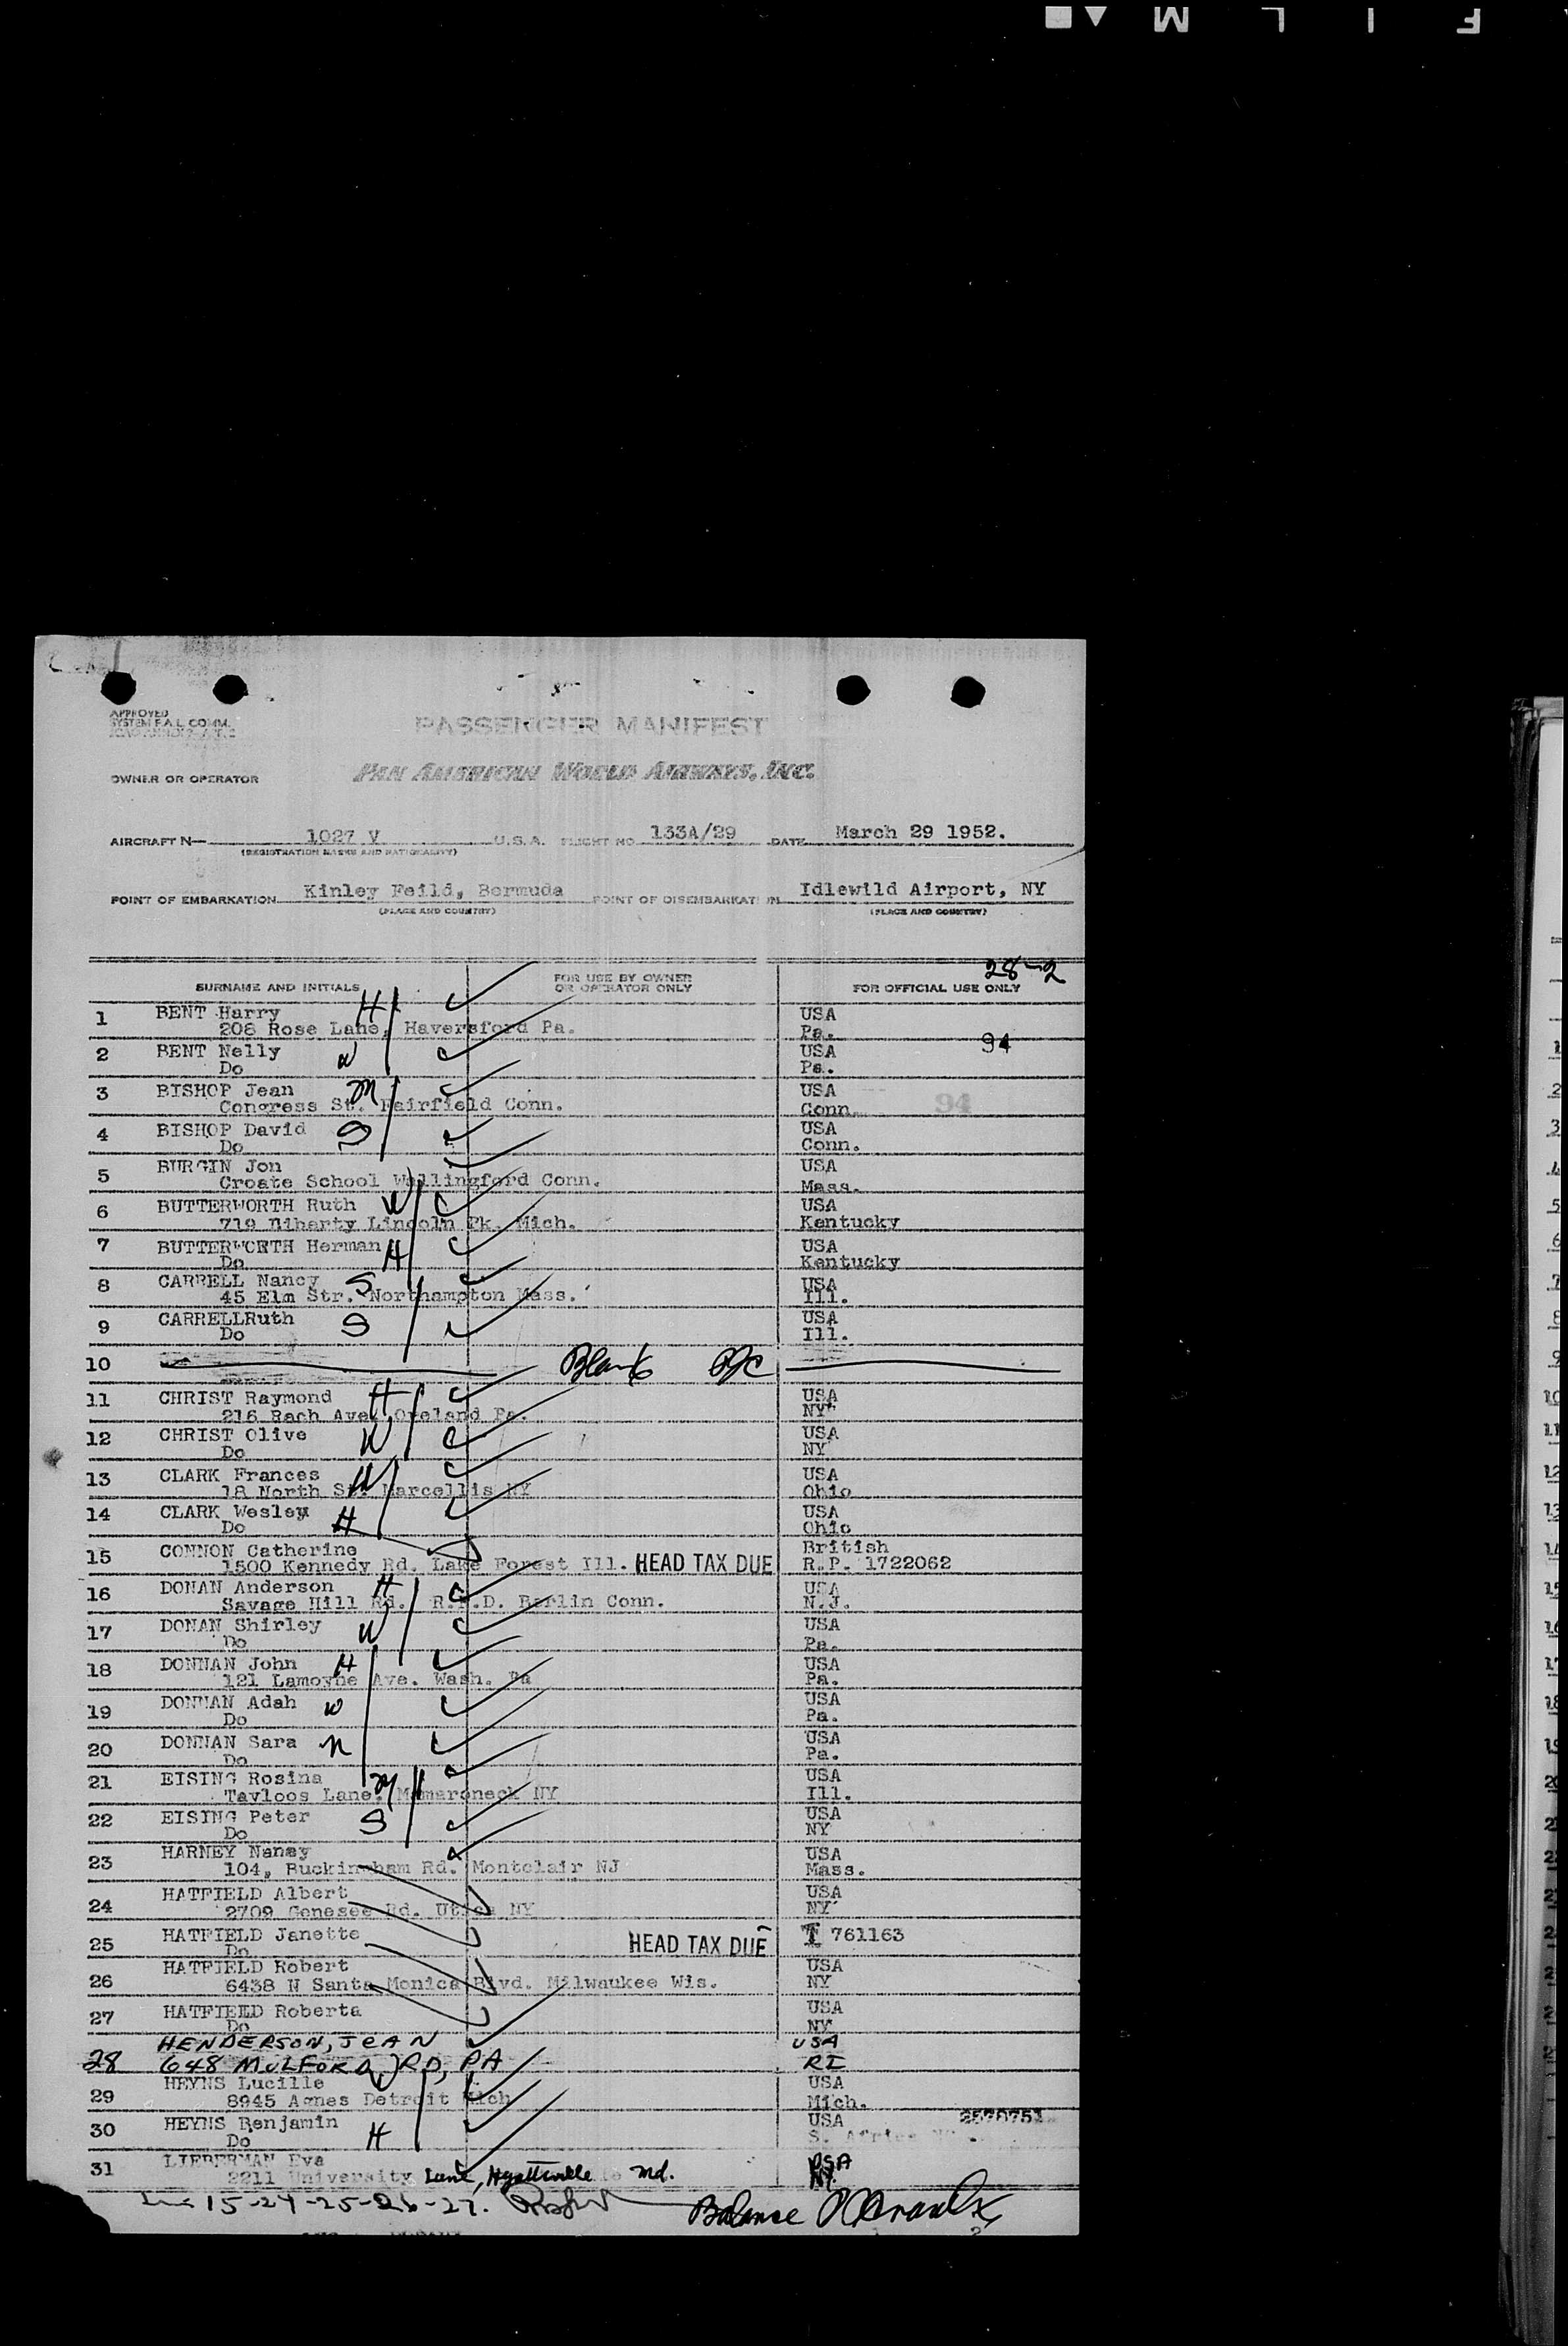 F I L M
APPROVED
SYSTEM F.A.L. COMM.
PASSENGER MANIFEST
OWNER OR OPERATOR PAN AMERICAN WORLD AIRWAYS, INC.
AIRCRAFT N— 1027 V U.S.A. FLIGHT NO. 133A/29 DATE March 29 1952.
(REGISTRATION MARKS AND NATIONALITY)
POINT OF EMBARKATION Kinley Feild, Bermuda POINT OF DISEMBARKATION Idlewild Airport, NY
(PLACE AND COUNTRY) (PLACE AND COUNTRY)
28-2
SURNAME AND INITIALS FOR USE BY OWNER OR OPERATOR ONLY FOR OFFICIAL USE ONLY
1 BENT Harry H USA
208 Rose Lane, Haversford Pa. Pa.
94
2 BENT Nelly W USA
Do Pa.
3 BISHOP Jean M USA
Congress St. Fairfield Conn. Conn. 94
4 BISHOP David S USA
Do Conn.
5 BURGIN Jon USA
Croate School Wallingford Conn. Mass.
6 BUTTERWORTH Ruth W USA
719 Lincoln Pk. Mich. Kentucky
7 BUTTERWORTH Herman H USA
Do Kentucky
8 CARRELL Nancy S USA
45 Elm Str. Northampton Mass. Ill.
9 CARRELLRuth S USA
Do Ill.
10 Blank
11 CHRIST Raymond H USA
216 Rach Ave. Oreland Pa. NY
12 CHRIST Olive W USA
Do NY
13 CLARK Frances W USA
18 North St. Marcellis NY Ohio
14 CLARK Wesley H USA
Do Ohio
15 CONNON Catherine British
1500 Kennedy Rd. Lake Forest Ill. HEAD TAX DUE R.P. 1722062
16 DONAN Anderson H USA
Savage Hill Rd. R.F.D. Berlin Conn. N.J.
17 DONAN Shirley W USA
Do Pa.
18 DONNAN John H USA
121 Lamoyne Ave. Wash. Pa Pa.
19 DONNAN Adah W USA
Do Pa.
20 DONNAN Sara USA
Do Pa.
21 EISING Rosina M USA
Tayloos Lane. Mamaroneck NY Ill.
22 EISING Peter S USA
Do NY
23 HARNEY Nancy USA
104, Buckingham Rd. Montclair NJ Mass.
24 HATFIELD Albert USA
2709 Genesee Rd. Utica NY NY
25 HATFIELD Janette HEAD TAX DUE T 761163
Do
26 HATFIELD Robert USA
6438 N Santa Monica Blvd. Milwaukee Wis. NY
27 HATFIELD Roberta USA
Do NY
HENDERSON, JEAN USA
28 648 MULFORD RD, PA RI
29 HEYNS Lucille W USA
8945 Agnes Detroit Mich Mich.
30 HEYNS Benjamin H USA 2570751
Do S. Africa
31 LIEBERMAN Eva USA
2211 University Lane, Hyattsville Md. NY.
15-24-25-26-27. Balance